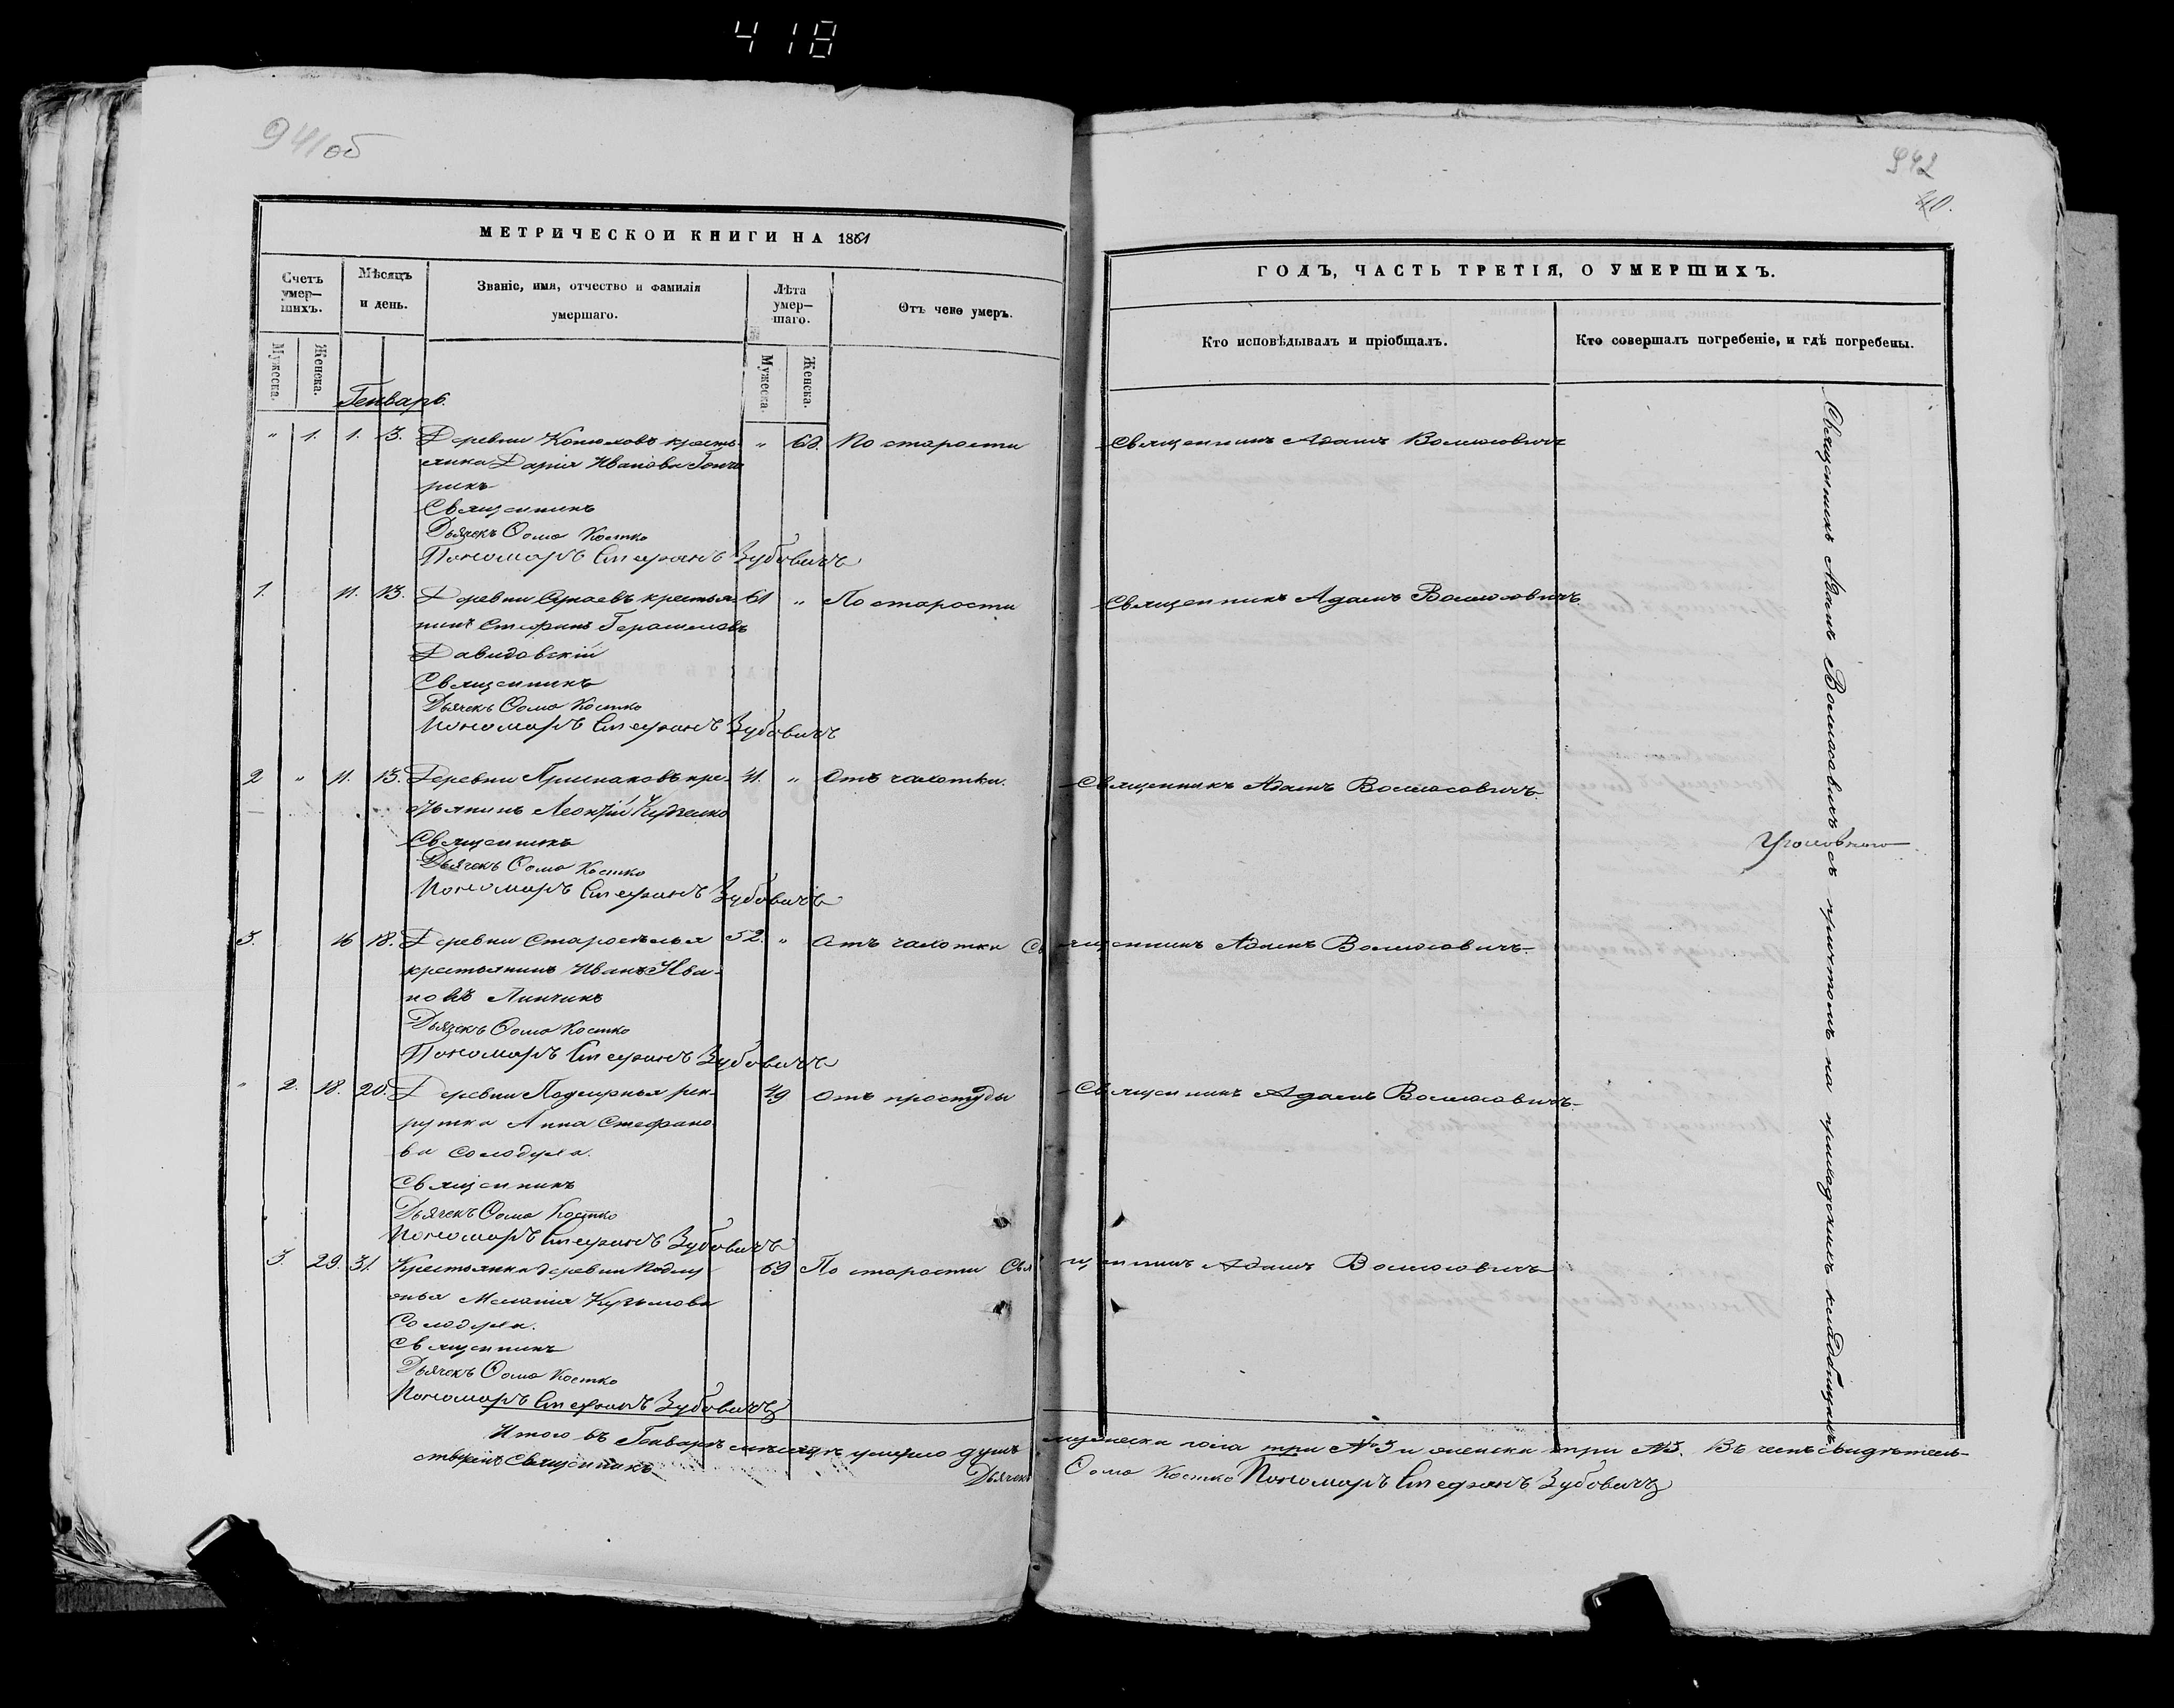 418
941об
942
40.
МЕТРИЧЕСКОЙ КНИГИ НА 1861
Счетъ умер—шихъ.
Мѣсяцъ и день.
Званіе, имя, отчество и фамилія умершаго.
Лѣта умер—шаго.
Отъ чего умеръ.
Мужеска.
Женска.
Мужеска.
Женска.
Генварь.
" 1. 1. 3. Деревни Конюховъ кресть-
янка Дарія Иванова Гонча
рикъ
" 62. По старости
Священникъ
Дьячекъ Ѳома Костко
Пономарь Стефанъ Зубовичъ
1. 11. 13. Деревни крестья-
нинъ Стефанъ Герасимовъ
Давидовскій
61 " По старости
Священникъ
Дьячекъ Ѳома Костко
Пономарь Стефанъ Зубовичъ
2 " 11. 13. Деревни кре-
стьянинъ Леонтій
41. " Отъ чахотки.
Священникъ
Дьячекъ Ѳома Костко
Пономарь Стефанъ Зубовичъ
3. 16 18. Деревни Староселья
крестьянинъ Иванъ Ива-
новъ Линчикъ
52. " Отъ чахотки
Дьячекъ Ѳома Костко
Пономарь Стефанъ Зубовичъ
" 2. 18. 20. Деревни рек-
рутка Анна Стефано
ва Солодуха.
49 Отъ простуды
Священникъ
Дьячекъ Ѳома Костко
Пономарь Стефанъ Зубовичъ
3. 29. 31. Крестьянка деревни
Меланія Кузьмова
Солодуха.
69 По старости
Священникъ
Дьячекъ Ѳома Костко
Пономарь Стефанъ Зубовичъ
Итого въ Генварѣ мѣсяцѣ умерло душъ
ствуемъ Священникъ
Дьячекъ
ГОДЪ, ЧАСТЬ ТРЕТІЯ, О УМЕРШИХЪ.
Кто исповѣдывалъ и пріобщалъ.
Кто совершалъ погребеніе, и гдѣ погребены.
Священникъ Адамъ Волосовичъ
Священникъ Адамъ Волосовичъ.
Священникъ Адамъ Волосовичъ.
Священникъ Адамъ Волосовичъ.
Священникъ Адамъ Волосовичъ.
Священникъ Адамъ Волосовичъ
Священникъ Адамъ Волосовичъ съ причтомъ на приходскихъ кладбищахъ
мужеска пола три №3 и женска три №3. Въ чемъ свидѣтель-
Ѳома Костко Пономарь Стефанъ Зубовичъ